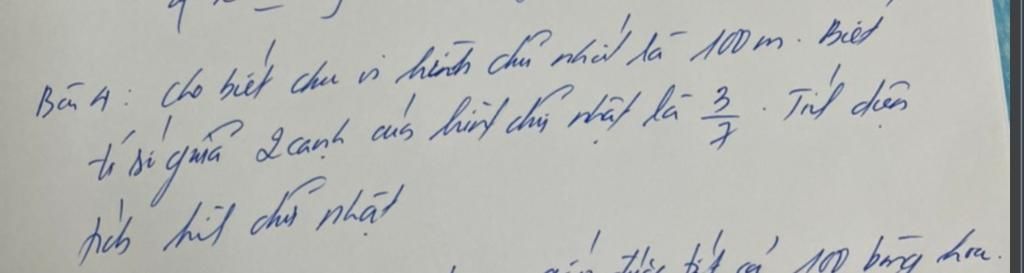 Bài 4: Cho biết chu vi hình chữ nhật là 100m. Biết
tỉ số giữa 2 cạnh của hình chữ nhật là 3/7. Tính diện
tích hình chữ nhật
tất cả 100 bông hoa.